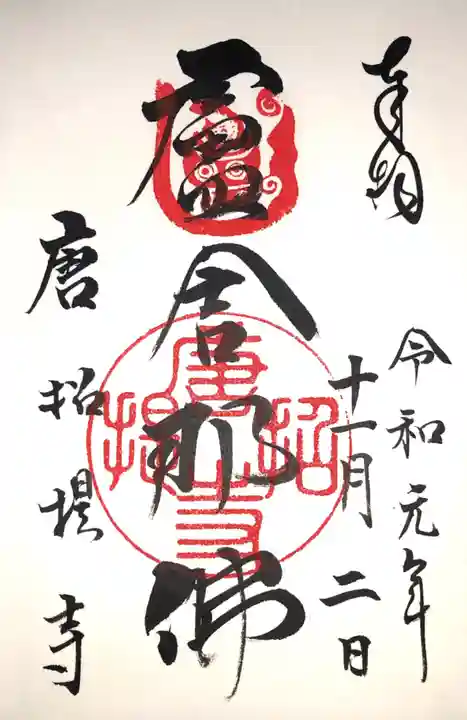 奉拝
令和元年
十一月二日
盧舎那仏
唐招提寺
唐招提寺